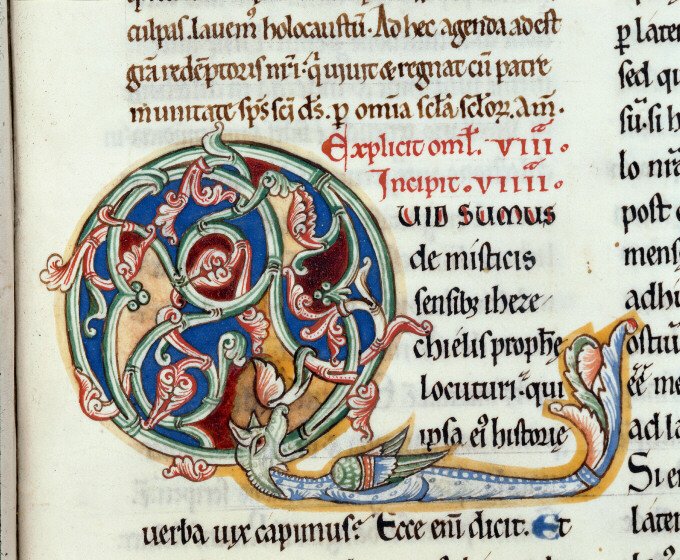 culpas. lavem᷒ holocaustū. Ad hec agenda adest
grā redēptoris nr̄i. q̄ vivit & regnat cū patre
in unitate sp̄s sc̄i ds̄. p̲ omia sc̄la scloꝝ. Am̄.
Explicit oml̄. VIIIᵃ.
Incipit. VIIIIᵃ.
QUID SUMUS
de misticis
sensibꝫ ihere
chielis prophȩ
locuturi. qui
ipsa ei᷒ historiȩ
verba vix capimus? Ecce eni᷒ dicit. Et
p̲ later
sed qu
su. si h
lo nr̄a
post c
mens
adhi
ostiu
eē me
ad la
Si er
later